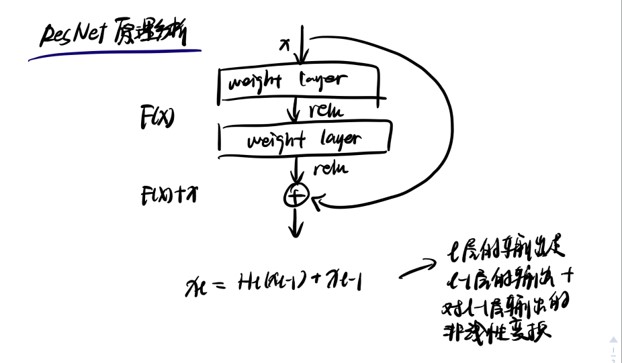 ResNet 原理分析
x
weight layer
relu
F(x)
weight layer
relu
F(x)+x
+
xℓ = Hℓ(xℓ-1) + xℓ-1
ℓ层的输出是
ℓ-1层的输出 +
对ℓ-1层输出的
非线性变换